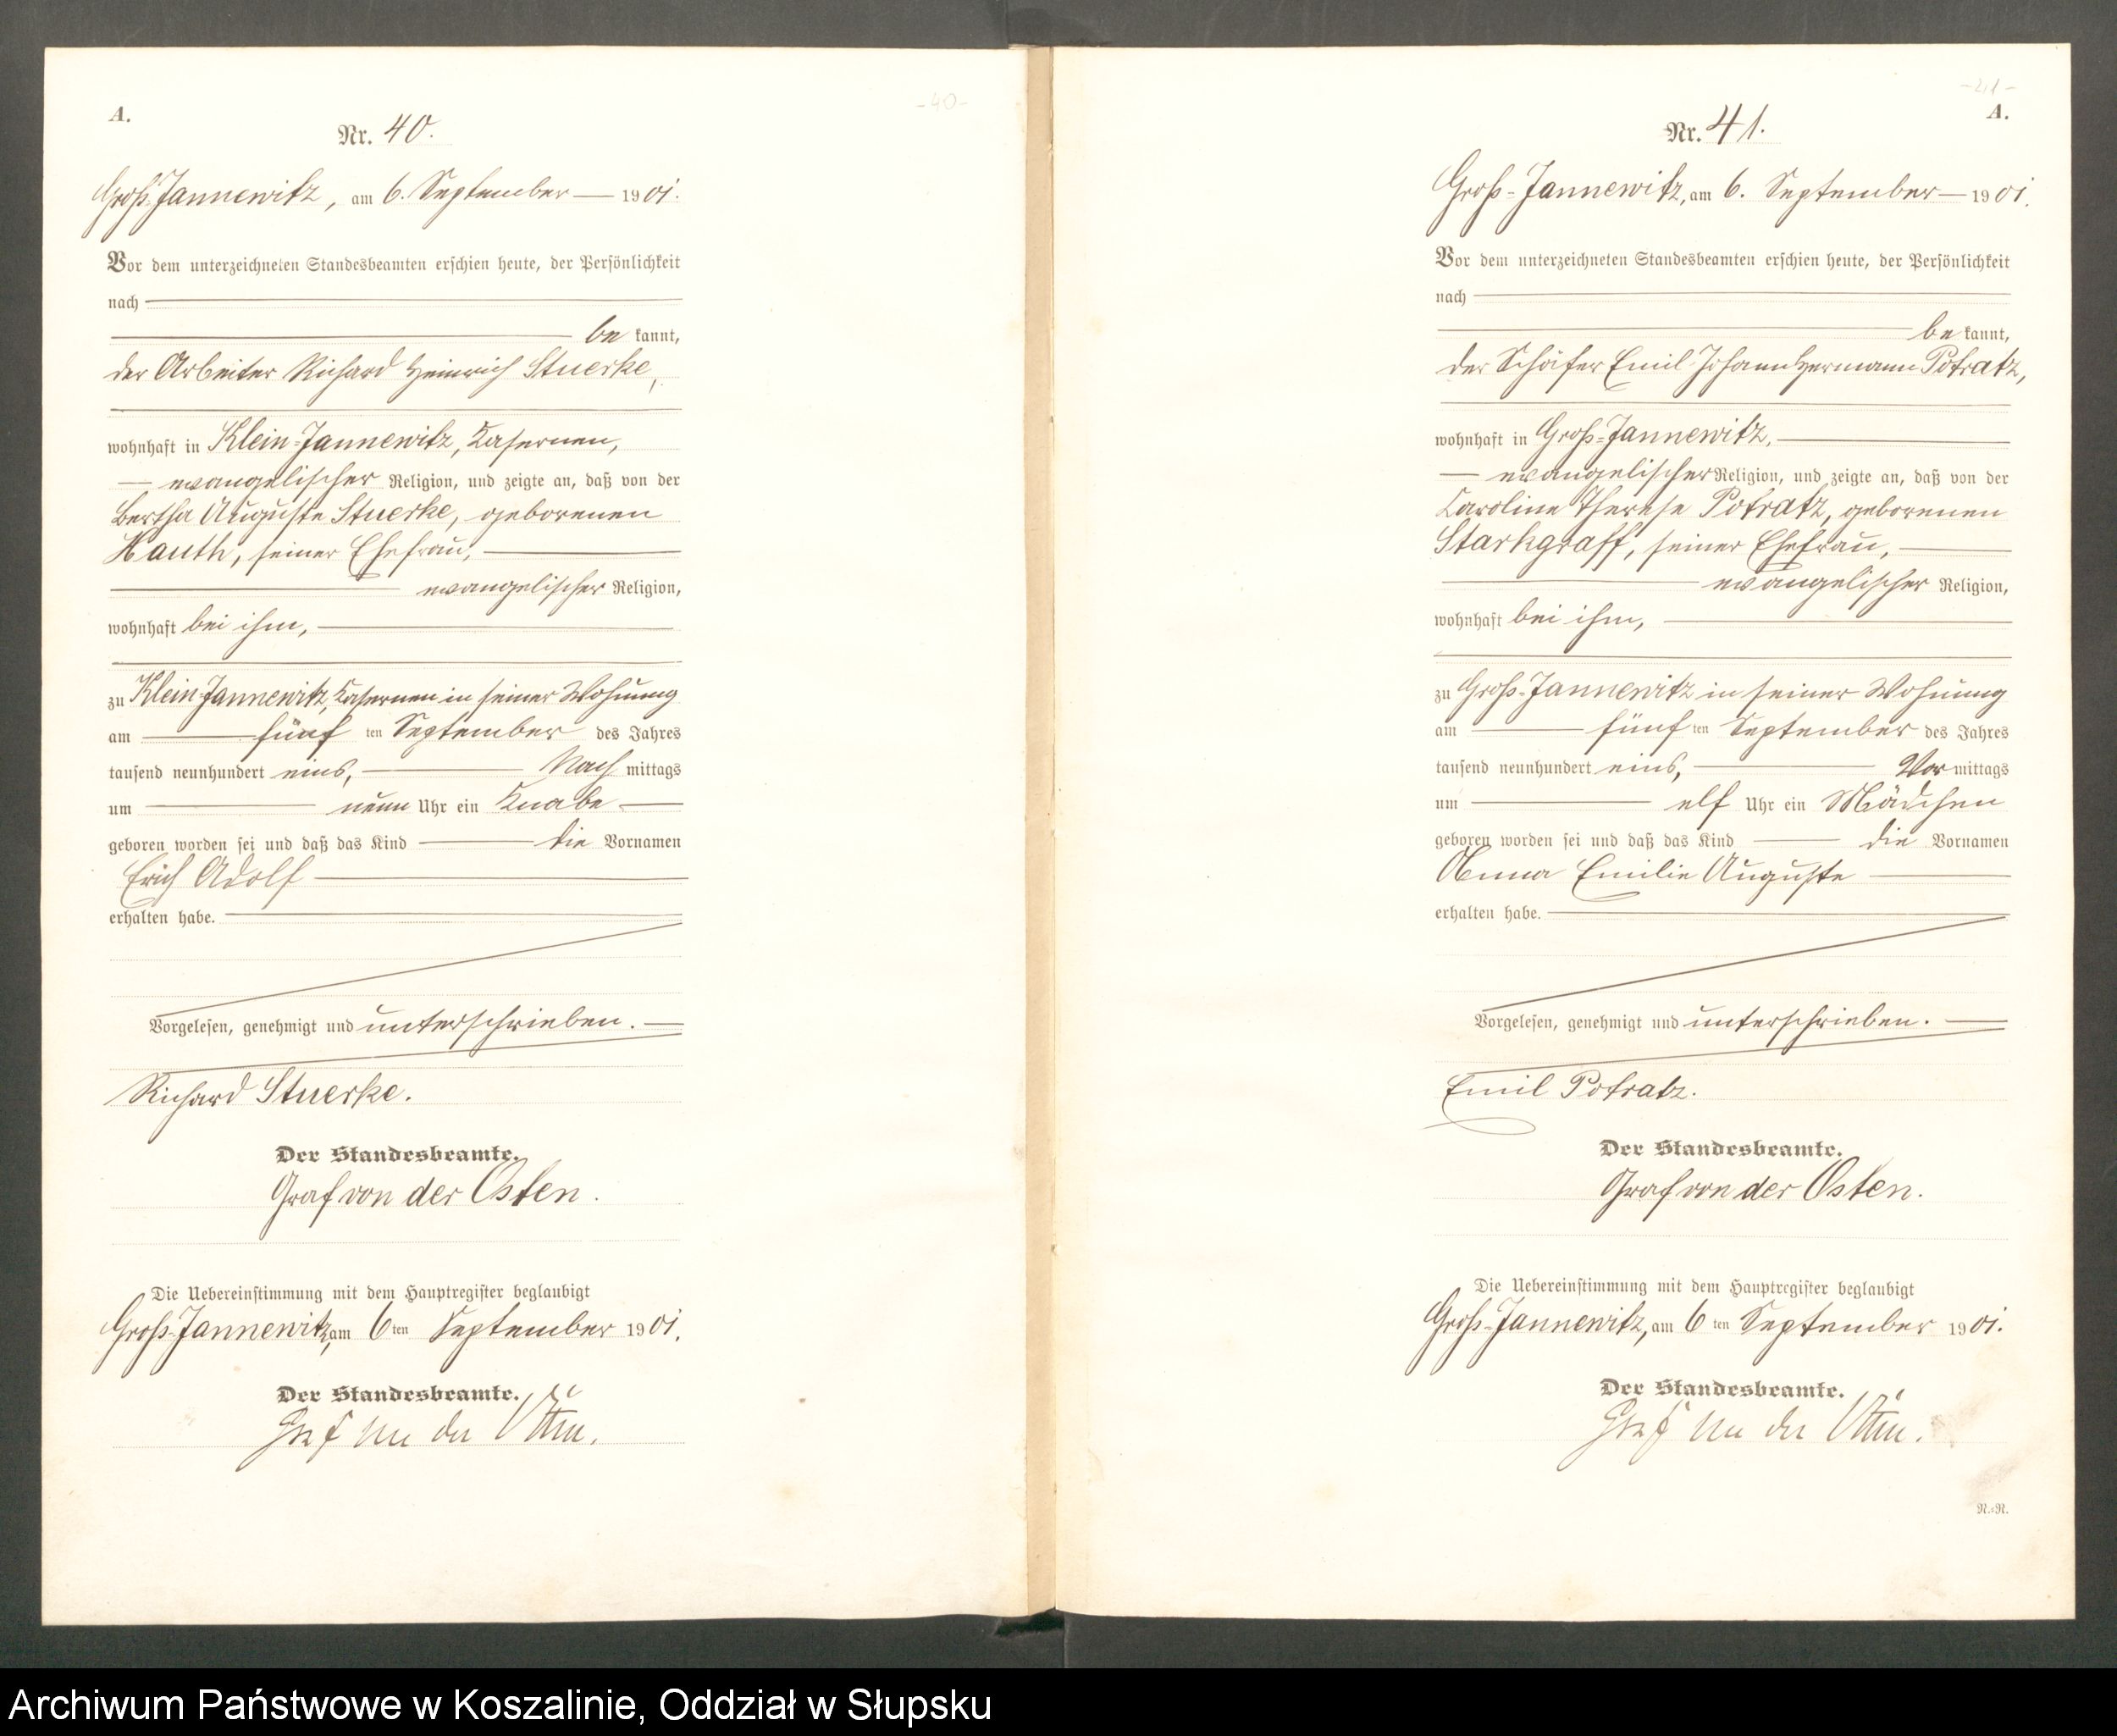 -40-
A.
Nr. 40.
Groß-Jannewitz, am 6. September 1901.
Vor dem unterzeichneten Standesbeamten erschien heute, der Persönlichkeit
nach
be kannt,
der Arbeiter Richard Heinrich Stuerke,
wohnhaft in Klein-Jannewitz, Kasernen,
evangelischer Religion, und zeigte an, daß von der
Bertha Auguste Stuerke, geborenen
Kauth, seiner Ehefrau,
evangelischer Religion,
wohnhaft bei ihm,
zu Klein-Jannewitz, Kasernen in seiner Wohnung
am fünf ten September des Jahres
tausend neunhundert eins, Nach mittags
um neun Uhr ein Knabe
geboren worden sei und daß das Kind die Vornamen
Erich Adolf
erhalten habe.
Vorgelesen, genehmigt und unterschrieben.
Richard Stuerke.
Der Standesbeamte.
Graf von der Osten.
Die Uebereinstimmung mit dem Hauptregister beglaubigt
Groß-Jannewitz, am 6 ten September 1901.
Der Standesbeamte.
Graf von der Osten.
-41-
A.
Nr. 41.
Groß-Jannewitz, am 6. September 1901.
Vor dem unterzeichneten Standesbeamten erschien heute, der Persönlichkeit
nach
be kannt,
der Schäfer Emil Johann Hermann Potratz,
wohnhaft in Groß-Jannewitz,
evangelischer Religion, und zeigte an, daß von der
Karoline Therese Potratz, geborenen
Starkgraff, seiner Ehefrau,
evangelischer Religion,
wohnhaft bei ihm,
zu Groß-Jannewitz in seiner Wohnung
am fünf ten September des Jahres
tausend neunhundert eins, Vor mittags
um elf Uhr ein Mädchen
geboren worden sei und daß das Kind die Vornamen
Anna Emilie Auguste
erhalten habe.
Vorgelesen, genehmigt und unterschrieben.
Emil Potratz.
Der Standesbeamte.
Graf von der Osten.
Die Uebereinstimmung mit dem Hauptregister beglaubigt
Groß-Jannewitz, am 6 ten September 1901.
Der Standesbeamte.
Graf von der Osten.
N.=N.
Archiwum Państwowe w Koszalinie, Oddział w Słupsku